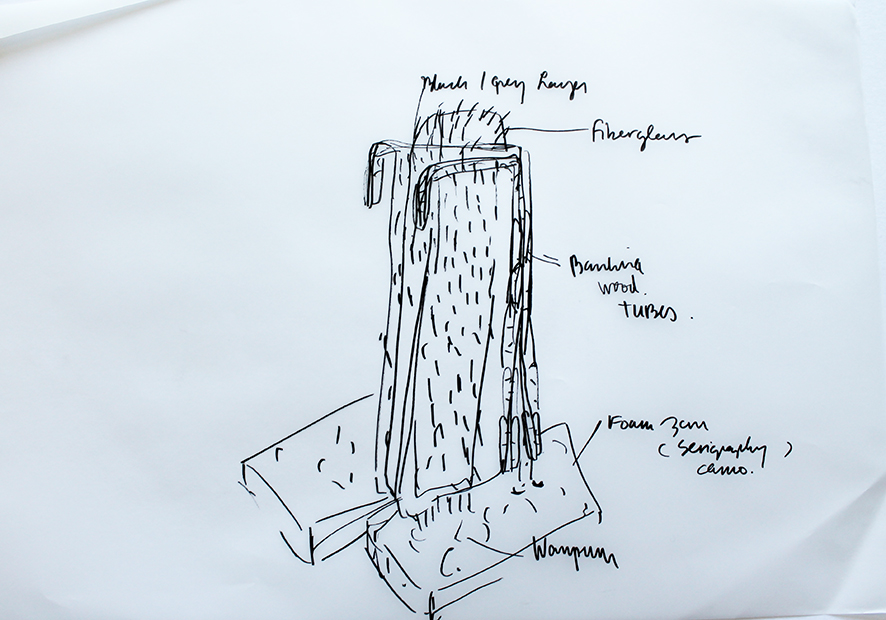 Black / grey
Fiberglass
wood.
TUBES.
Foam 3cm
( Serigraphy )
camo.
Wampum